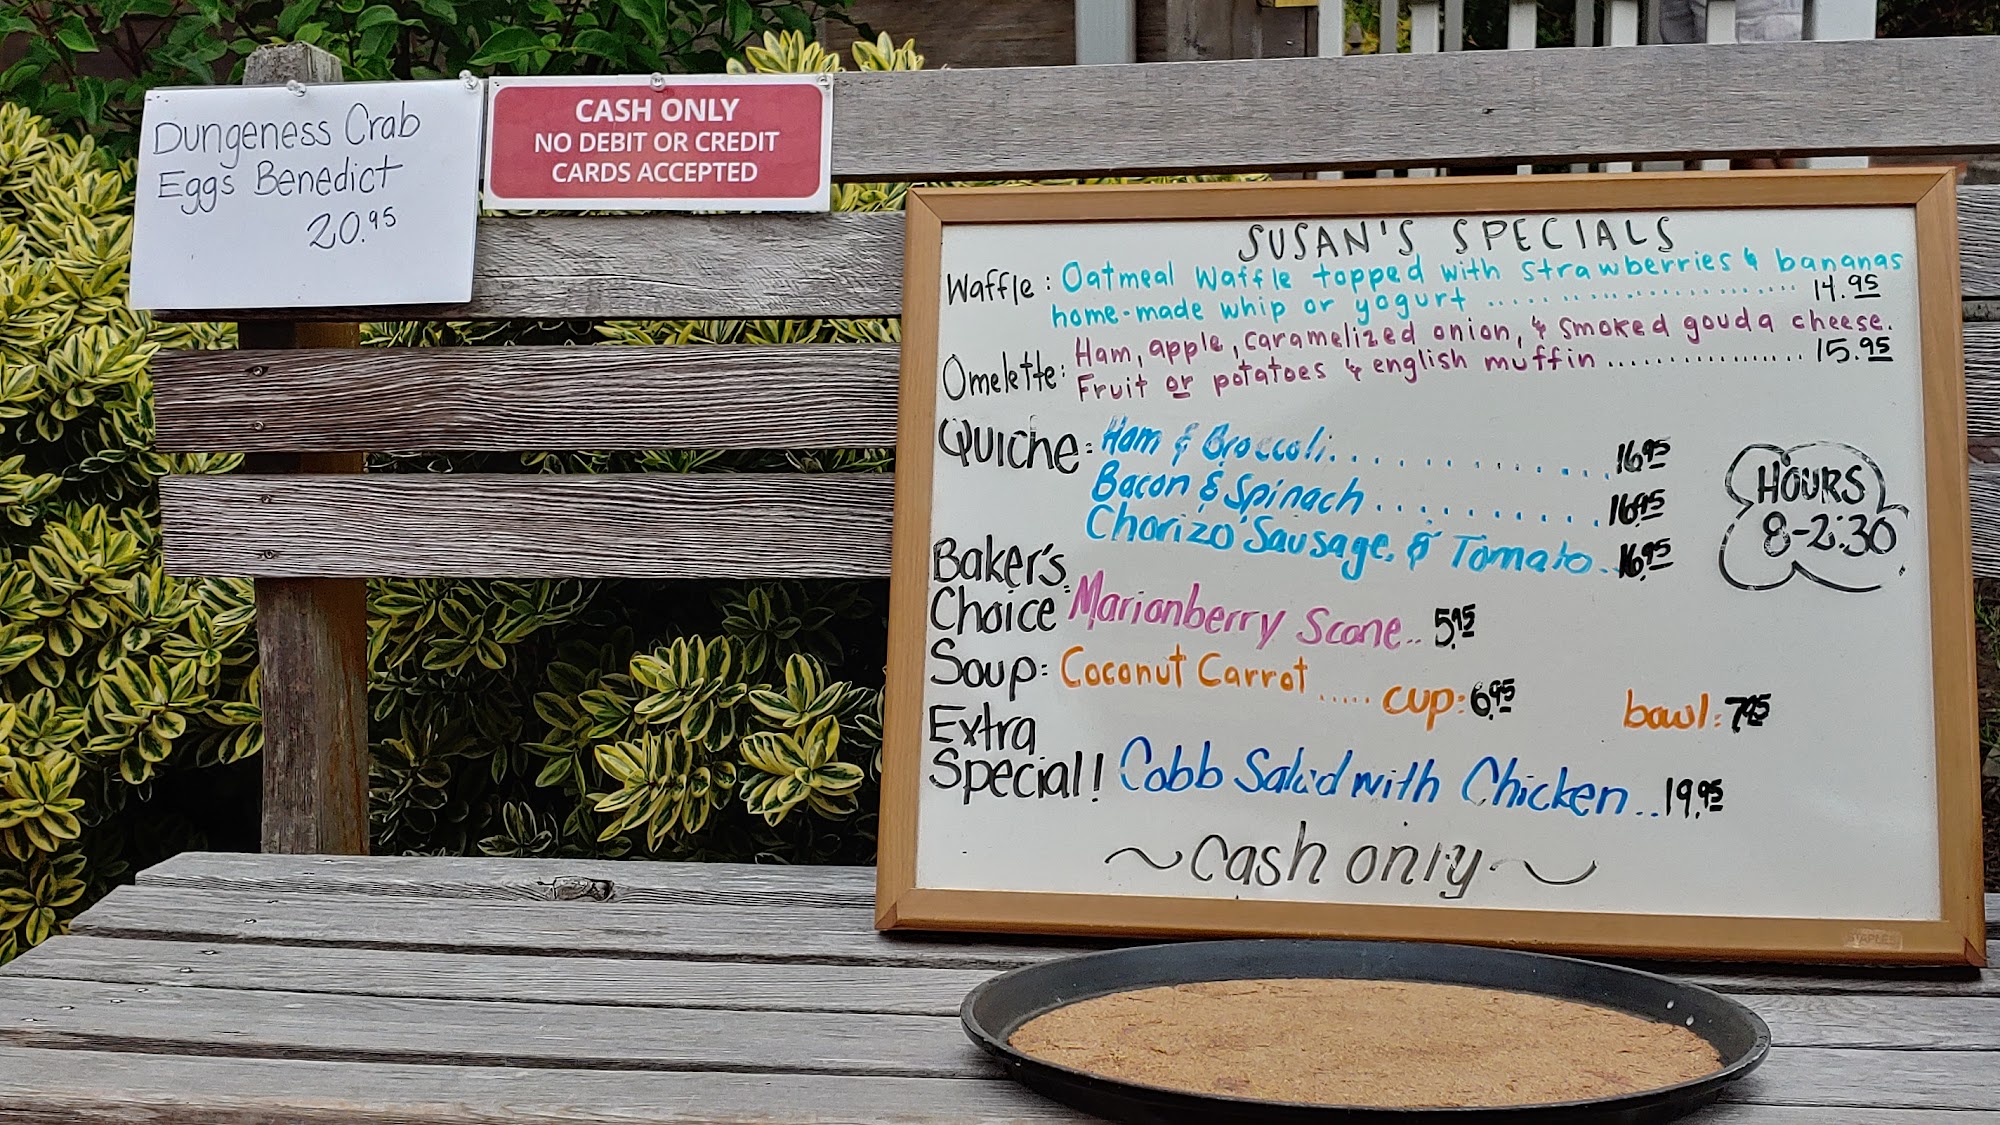 Dungeness Crab
Eggs Benedict
20.95
CASH ONLY
NO DEBIT OR CREDIT
CARDS ACCEPTED
SUSAN'S SPECIALS
Waffle: Oatmeal Waffle topped with strawberries & bananas
home-made whip or yogurt .................... 14.95
Omelette: Ham, apple, caramelized onion, & smoked gouda cheese.
Fruit or potatoes & english muffin ................. 15.95
Quiche: Ham & Broccoli............. 16.95
Bacon & Spinach........... 16.95
Chorizo Sausage, & Tomato.. 16.95
HOURS
8-2:30
Baker's
Choice: Marionberry Scone.. 5.95
Soup: Coconut Carrot ..... cup: 6.95 bowl: 7.95
Extra
Special! Cobb Salad with Chicken.. 19.95
~Cash only~
STAPLES